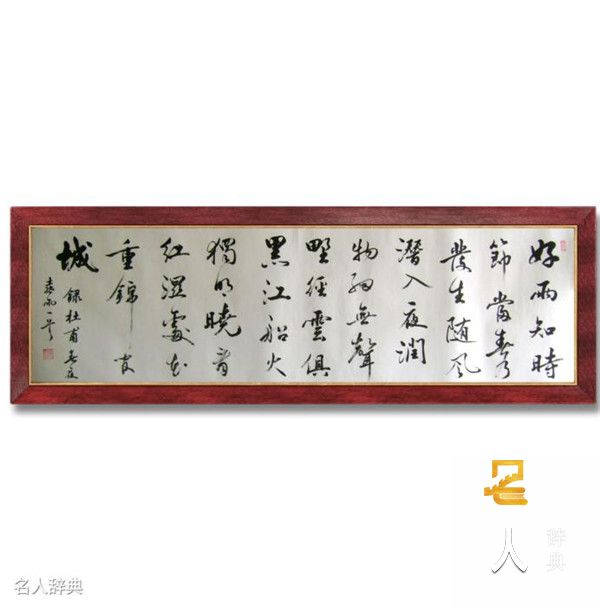 好雨知時
節當春乃
發生随風
潛入夜潤
物細無聲
野徑雲俱
黑江船火
獨明曉看
紅濕處花
重錦官
城
錄杜甫春夜
人
辞典
名人辞典